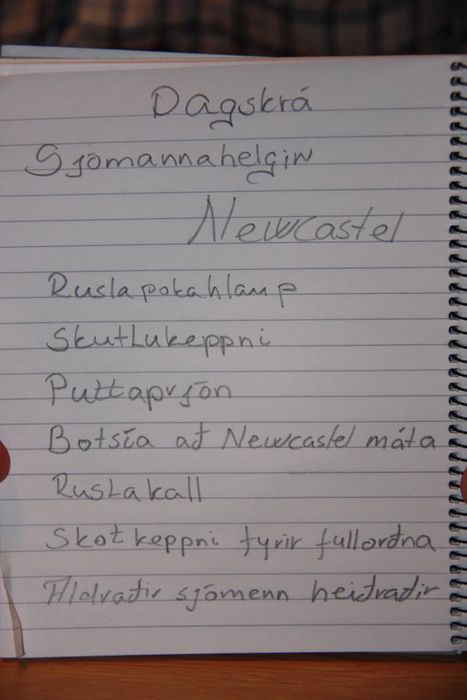 Dagskrá
Sjómannahelgin
Newcastel
Ruslapokahlaup
Skutlukeppni
Puttaprjón
Botsía að Newcastel máta
Ruslakall
Skotkeppni fyrir fullorðna
Aldraðir sjómenn heiðraðir